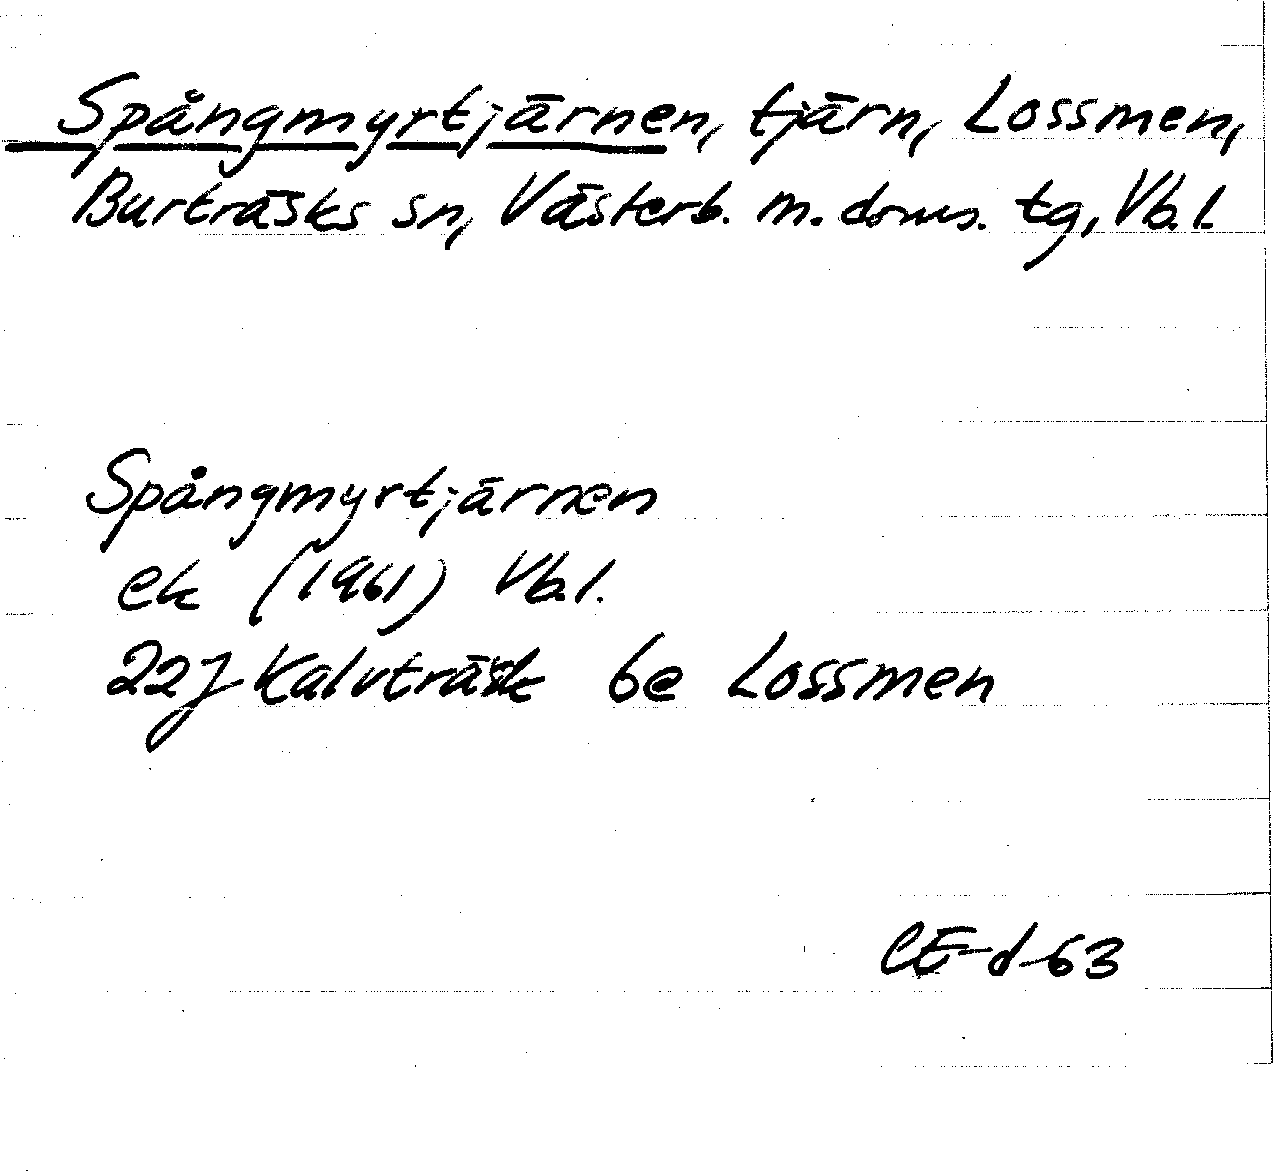 Spångmyrtjärnen, tjärn, Lossmen,
Burträsks sn, Västerb. m. doms. tg, Vb.l.
Spångmyrtjärnen
ek (1961) Vb.l.
22J Kalvträsk 6e Lossmen
CE-d-63